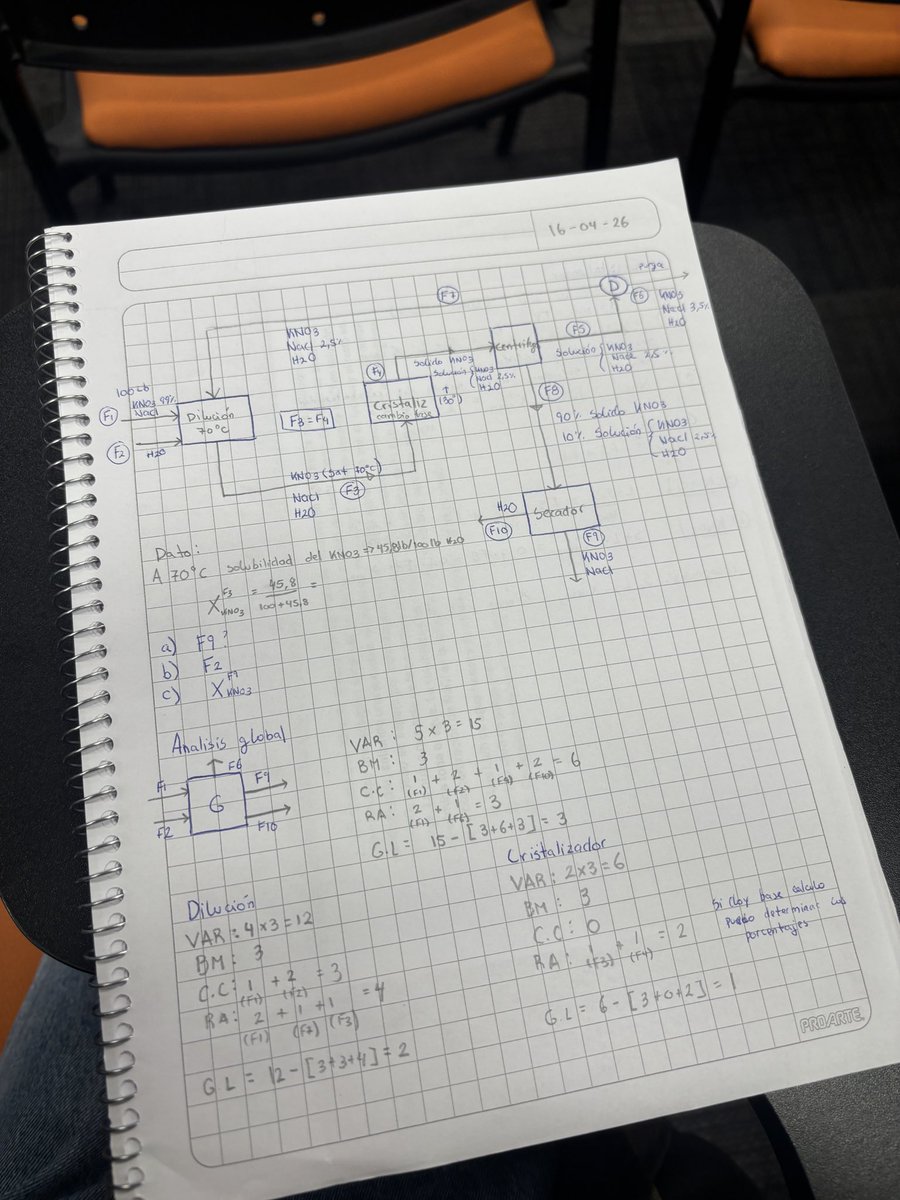 16-04-26
purga
F7
D
F6
KNO3
Nacl 3,5%
H2O
KNO3
Nacl 2,5%
H2O
F5
Solución { KNO3
Nacl 2,5%
H2O
Centrifug
Solido KNO3
Solución { KNO3
Nacl 2.5%
H2O
(30°)
F4
Cristaliz
cambio fase
F3 = F4
100 lb
KNO3 99%
Nacl
F1
F2
H2O
Dilución
70°C
KNO3 (Sat 70°C)
F3
Nacl
H2O
F8
90% Solido KNO3
10% Solución { KNO3
Nacl 2,5%
H2O
Secador
H2O
F10
F9
KNO3
Nacl
Dato:
A 70°C solubilidad del KNO3 => 45,8 lb/100 lb H2O
X KNO3 F3 = 45,8 / 100+45,8 =
a) F9?
b) F2
c) X KNO3
Analisis global
F1
F2
G
F6
F9
F10
VAR: 5x3=15
BM: 3
C.C: 1 (F1) + 2 (F2) + 1 (F9) + 2 (F10) = 6
RA: 2 (F1) + 1 (F6) = 3
G.L = 15 - [3+6+3] = 3
Dilución
VAR: 4x3=12
BM: 3
C.C: 1 (F1) + 2 (F2) = 3
RA: 2 (F1) + 1 (F7) + 1 (F3) = 4
G L = 12 - [3+3+4] = 2
Cristalizador
VAR: 2x3=6
BM: 3
C.C: 0
RA: 1 (F3) + 1 (F4) = 2
G.L = 6 - [3+0+2] = 1
Si doy base calculo
puedo determinar los
porcentajes
PROARTE